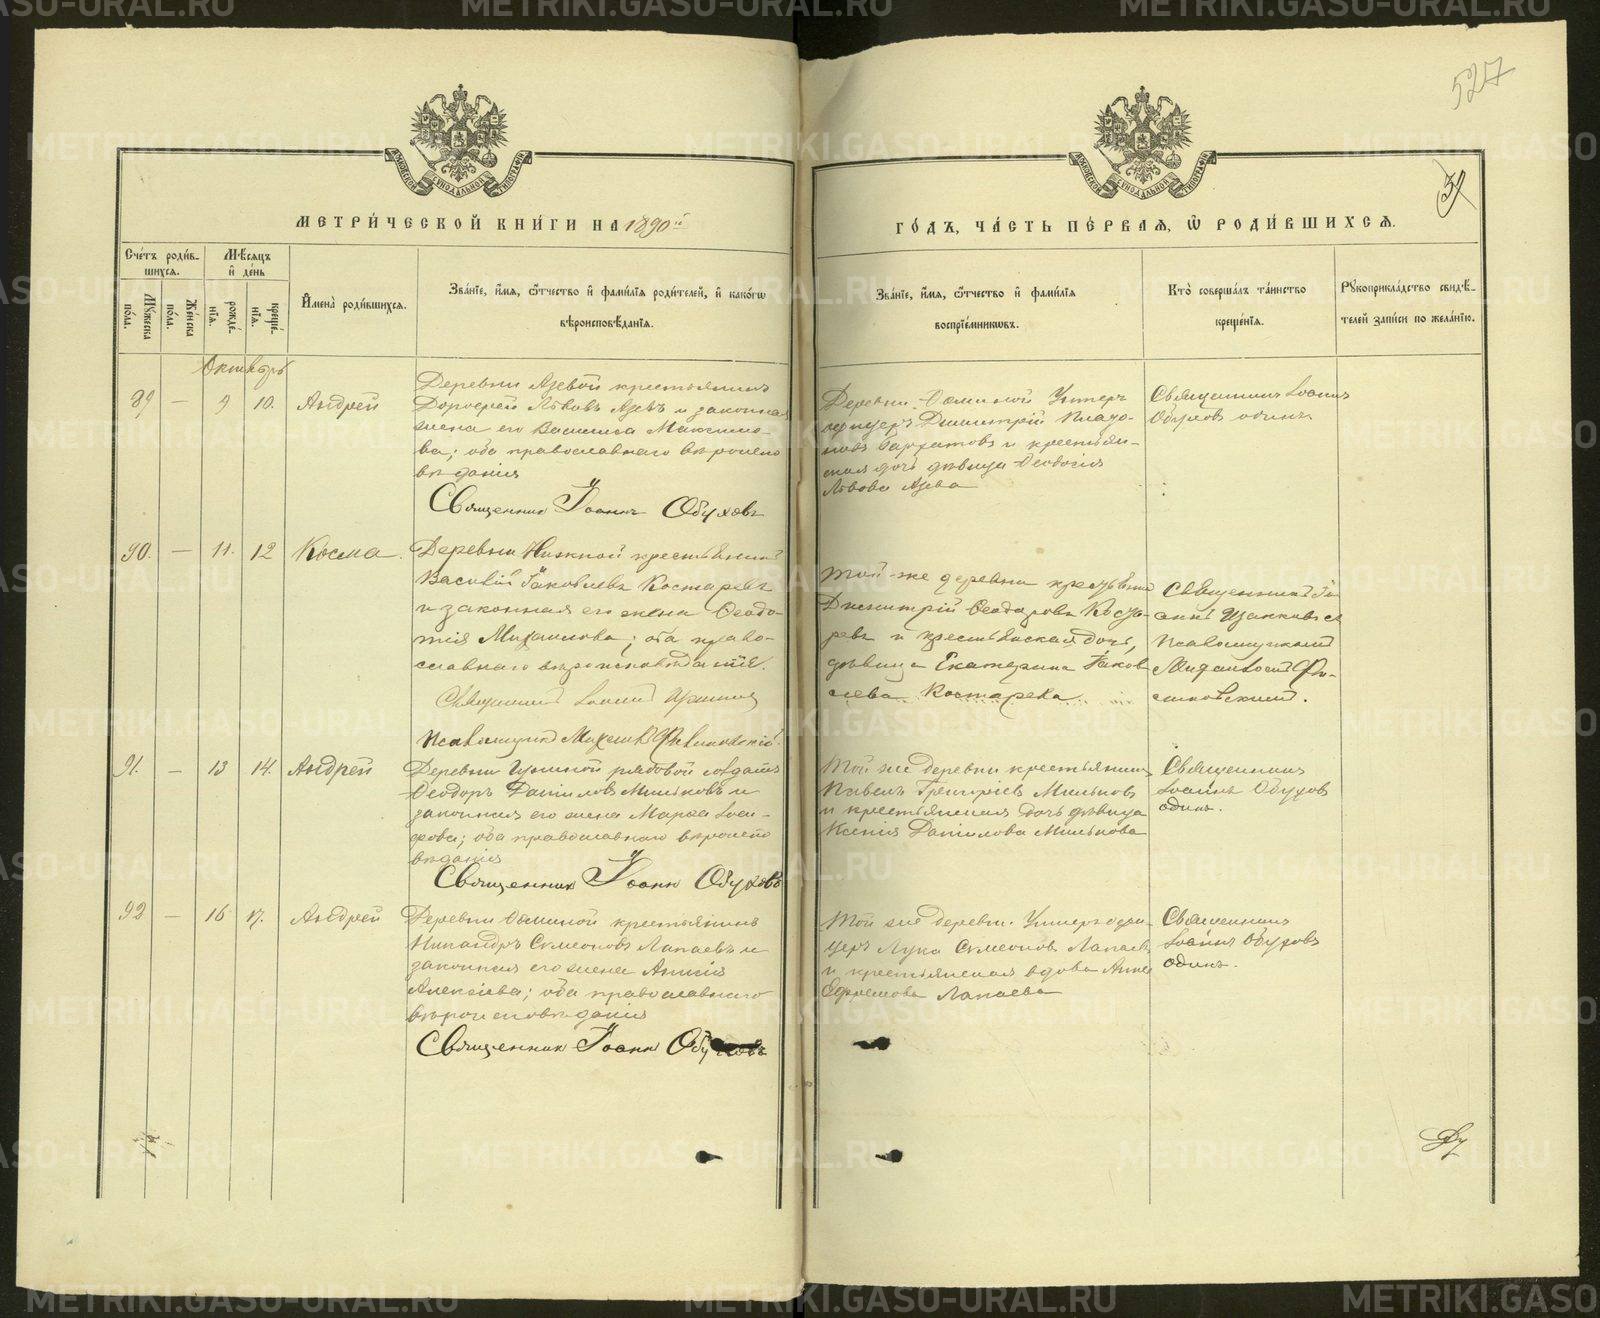 527
39
МЕТРИ́ЧЕСКОЙ КНИ́ГИ НА 1890й
ГО́ДЪ, ЧА́СТЬ ПЕ́РВАѦ, Ѡ҆ РОДИ́ВШИХСѦ.
Сче́тъ роди́в-
шихсѧ.
Мѣ́сѧцъ
и҆ де́нь
Мꙋ́жеска
по́ла.
Же́нска
по́ла.
рожде́-
нїѧ.
креще́-
нїѧ.
И҆мена̀ роди́вшихсѧ.
Зва́нїе, и҆́мѧ, ѻ҆́тчество и҆ фами́лїѧ роди́телей, и҆ како́гѡ
вѣроисповѣ́данїѧ.
Зва́нїе, и҆́мѧ, ѻ҆́тчество и҆ фами́лїѧ
воспрїе́мникѡвъ.
Кто̀ соверша́лъ та́инство
креще́нїѧ.
Рꙋкоприкла́дство свидѣ́-
телей за́писи по жела́нїю.
Октябрь
89 — 9 10. Андрей
Деревни Азевой крестьянинъ
Дорофей Львовъ Азевъ и законная
жена его Васиlиса Максимо-
ва; оба православнаго вѣроиспо
вѣданія
Священник Іоаннъ Обуховъ
Деревни Ѳоминой Унтеръ
офицеръ Димитрій
и крестьян-
ская дочь дѣвица Ѳеодосія
Львова Азева
Священникъ Іоаннъ
Обуховъ одинъ.
90. — 11. 12 Косма.
Деревни Нижной крестьянинъ
Василій Іаковлевъ Костаревъ
и законная его жена Ѳеодо-
тія Михаилова; оба право-
славнаго вѣроисповѣданія.
Священникъ Іоаннъ
Псаломщикъ
Той-же деревни крестьянинъ
Димитрій Ѳеодоровъ Коста-
ревъ и крестьянская дочь,
дѣвица Екатерина Іаков-
лева Костарева
Священникъ Іо-
аннъ
Псаломщикъ
91. — 13 14. Андрей
Деревни рядовой солдатъ
Ѳеодоръ Даніиловъ Мильковъ и
законная его жена Марѳа Іоси-
фова; оба православнаго вѣроиспо
вѣданія
Священник Іоанн Обуховъ
Той же деревни крестьянинъ
Павелъ Григоріевъ Мильковъ
и крестьянская дочь дѣвица
Ксенія Даніилова Милькова
Священникъ
Іоаннъ Обуховъ
одинъ.
92 — 16 17. Андрей
Деревни Ѳоминой крестьянинъ
Никандръ Сѵмеоновъ Лапаевъ и
законная его жена Анисія
Алексіева; оба православнаго
вѣроисповѣданія
Священник Іоанн Обуховъ
Той же деревни Унтеръ офи-
церъ Лука Сѵмеоновъ Лапаевъ
и крестьянская вдова Анна
Ефремова Лапаева
Священникъ
Іоаннъ Обуховъ
одинъ.
METRIKI.GASO-URAL.RU